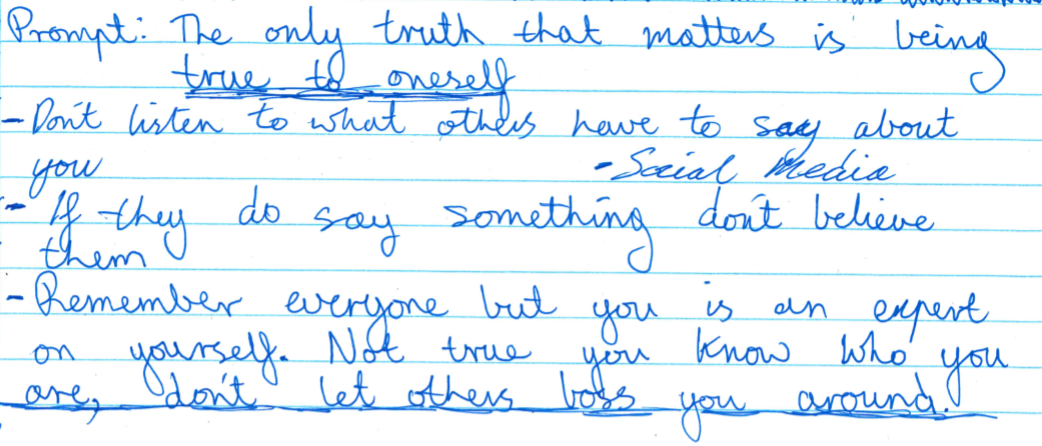 Prompt: The only truth that matters is being
true to oneself
- Don't listen to what others have to say about
you - Social Media
- If they do say something don't believe
them
- Remember everyone but you is an expert
on yourself. Not true you know who you
are, don't let others boss you around.